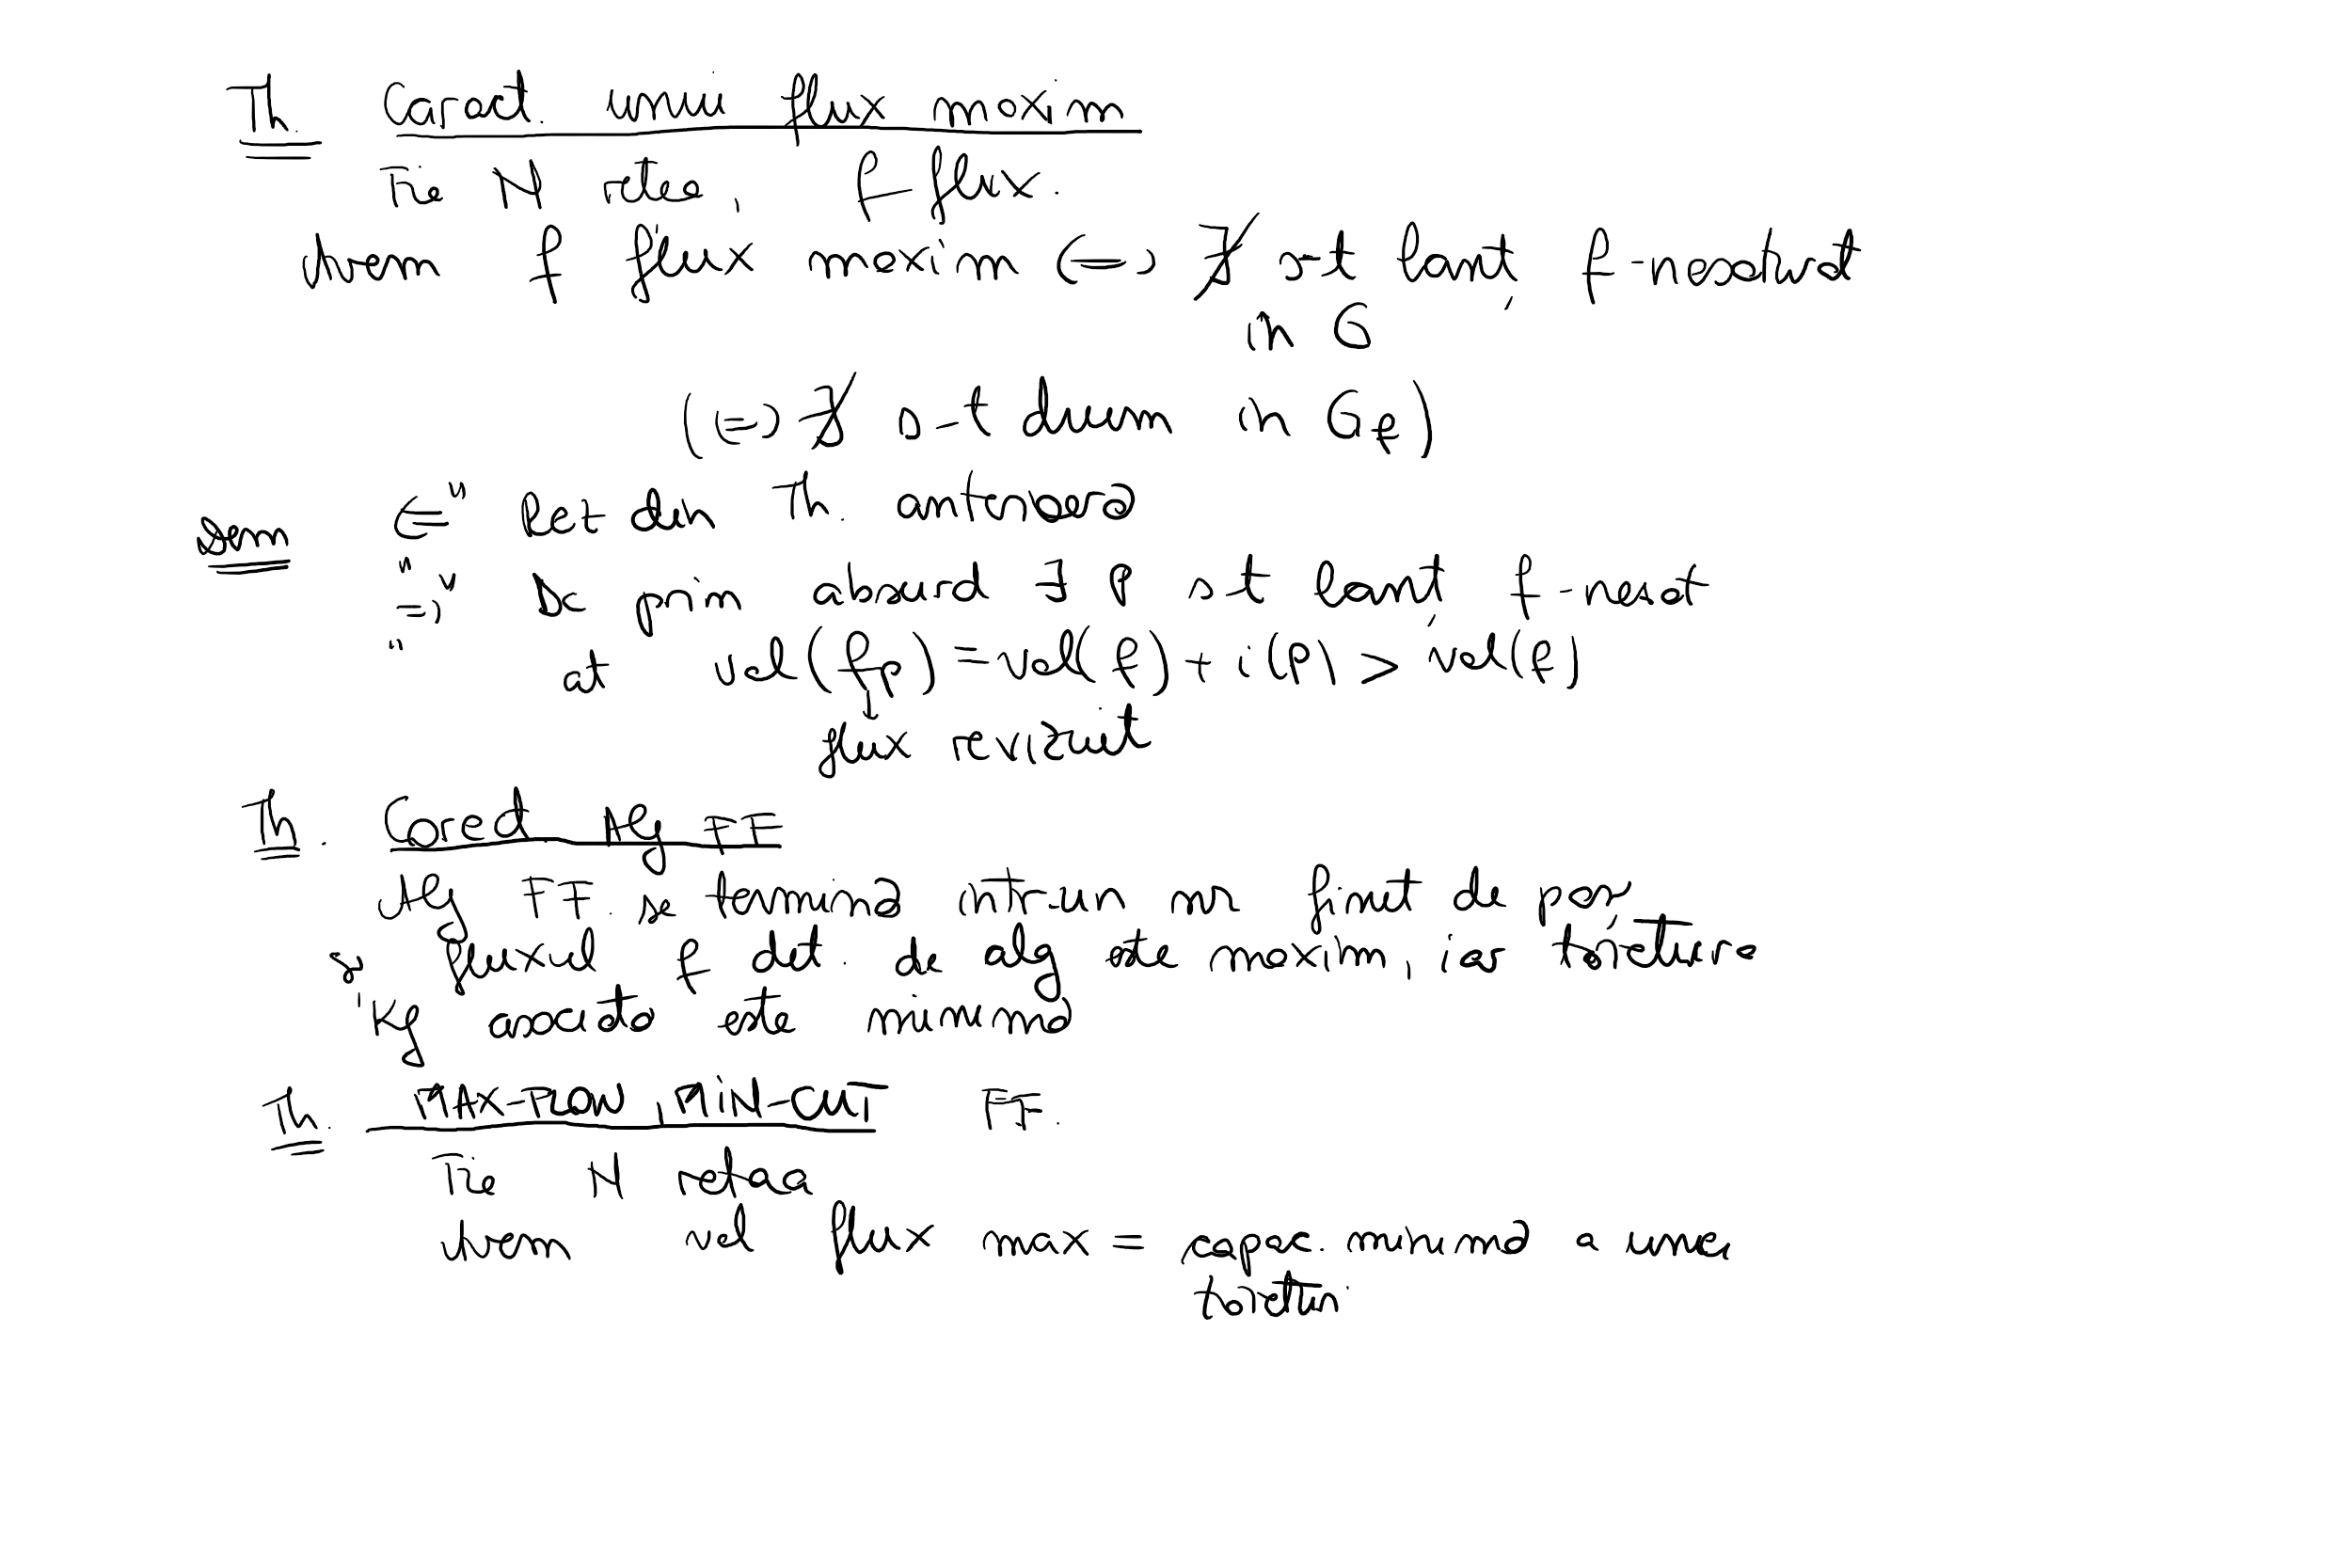 Th. Caract. unui flux maxim
Fie N rețea, f flux.
Avem f flux maxim (=) ∄ s-t lanț f-nesaturat
in G
(=) ∄ s-t drum in Gf)
Dem "⇐" Rez din Th. anterioară
"=)" Dc prin absurd ∃ P st lanț f-nesat
at val(fp) = val(f) + i(P) > val(f)
flux revizuit
Th. Corect Alg FF
Alg FF. se termină intr-un nr finit de pași
și fluxul f det. de alg este maxim, iar tăietura
Kf asociată este minimă
Th. MAX-FLOW, MIN-CUT FF.
Fie N rețea
Avem val flux max = capac. minimă a unei
tăieturi